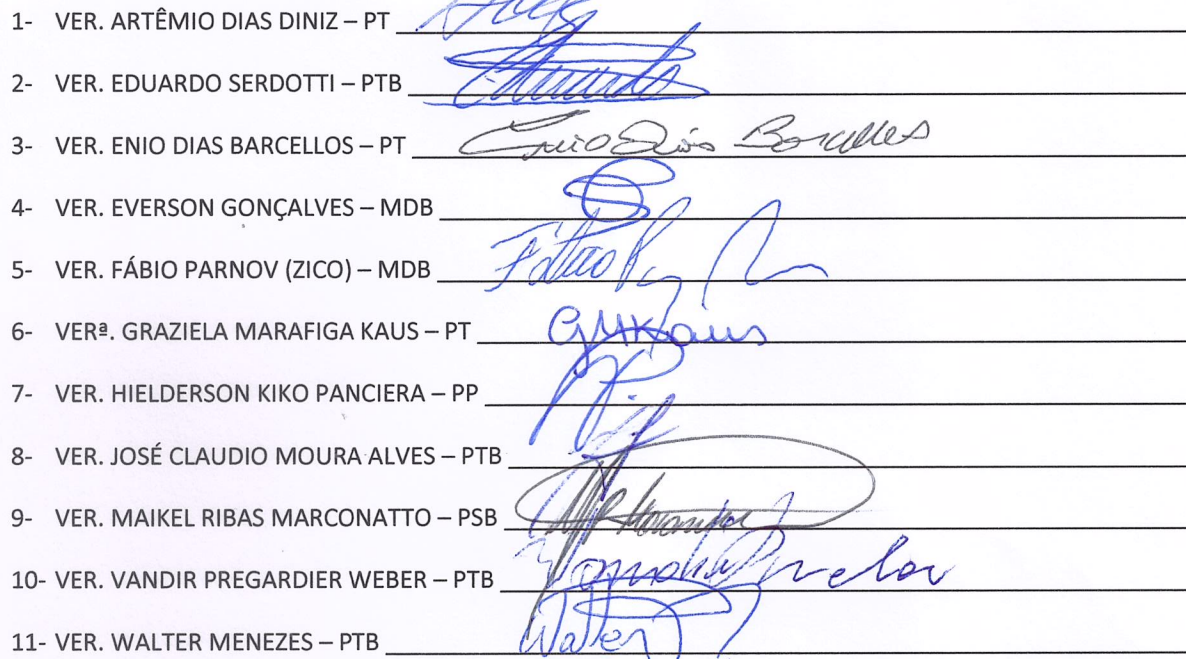 1- VER. ARTÊMIO DIAS DINIZ – PT
2- VER. EDUARDO SERDOTTI – PTB Eduardo
3- VER. ENIO DIAS BARCELLOS – PT Enio Dias Barcellos
4- VER. EVERSON GONÇALVES – MDB
5- VER. FÁBIO PARNOV (ZICO) – MDB Fábio
6- VERª. GRAZIELA MARAFIGA KAUS – PT GMKaus
7- VER. HIELDERSON KIKO PANCIERA – PP
8- VER. JOSÉ CLAUDIO MOURA ALVES – PTB
9- VER. MAIKEL RIBAS MARCONATTO – PSB
10- VER. VANDIR PREGARDIER WEBER – PTB
11- VER. WALTER MENEZES – PTB Walter